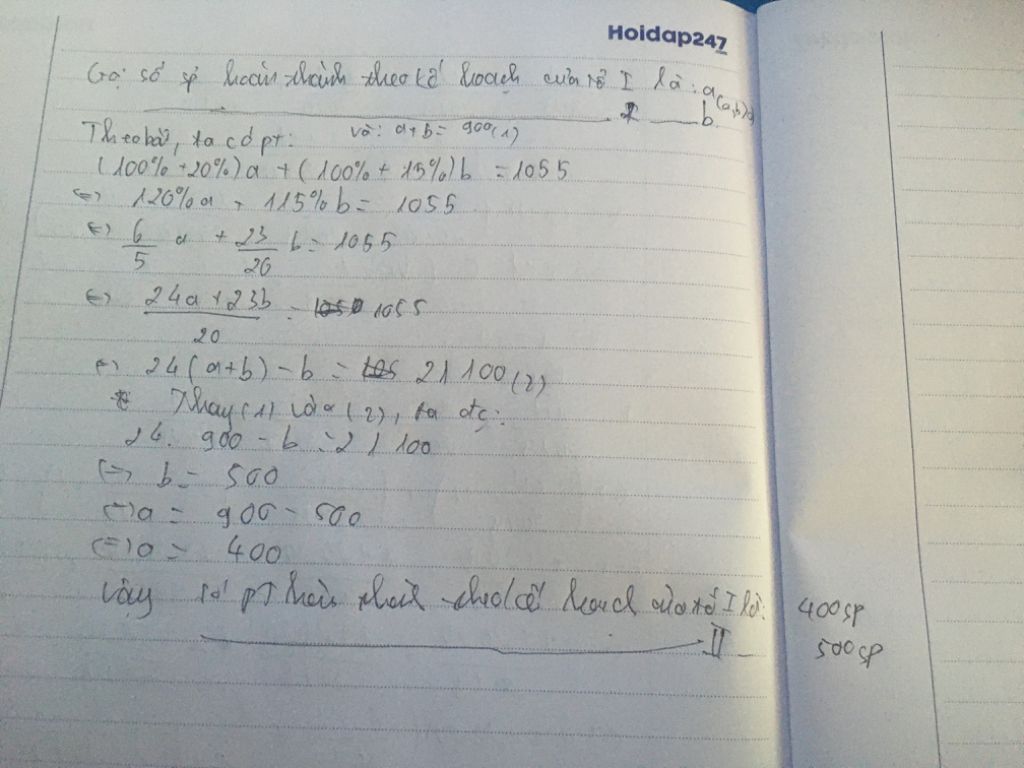 Hoidap247
Gọi số sp hoàn thành theo kế hoạch của tổ I là: a (a,b>0)
II b.
Theo bài, ta có pt: và: a+b = 900 (1)
(100% +20%)a + (100% + 15%)b = 1055
<=> 120%a + 115%b = 1055
<=> 6/5 a + 23/20 b = 1055
<=> 24a + 23b / 20 = 1055
<=> 24(a+b) - b = 21100 (2)
* Thay (1) vào (2), ta đc:
24. 900 - b = 21100
<=> b = 500
<=> a = 900 - 500
<=> a = 400
Vậy số hoàn thành theo kế hoạch của tổ I là: 400sp
II 500sp